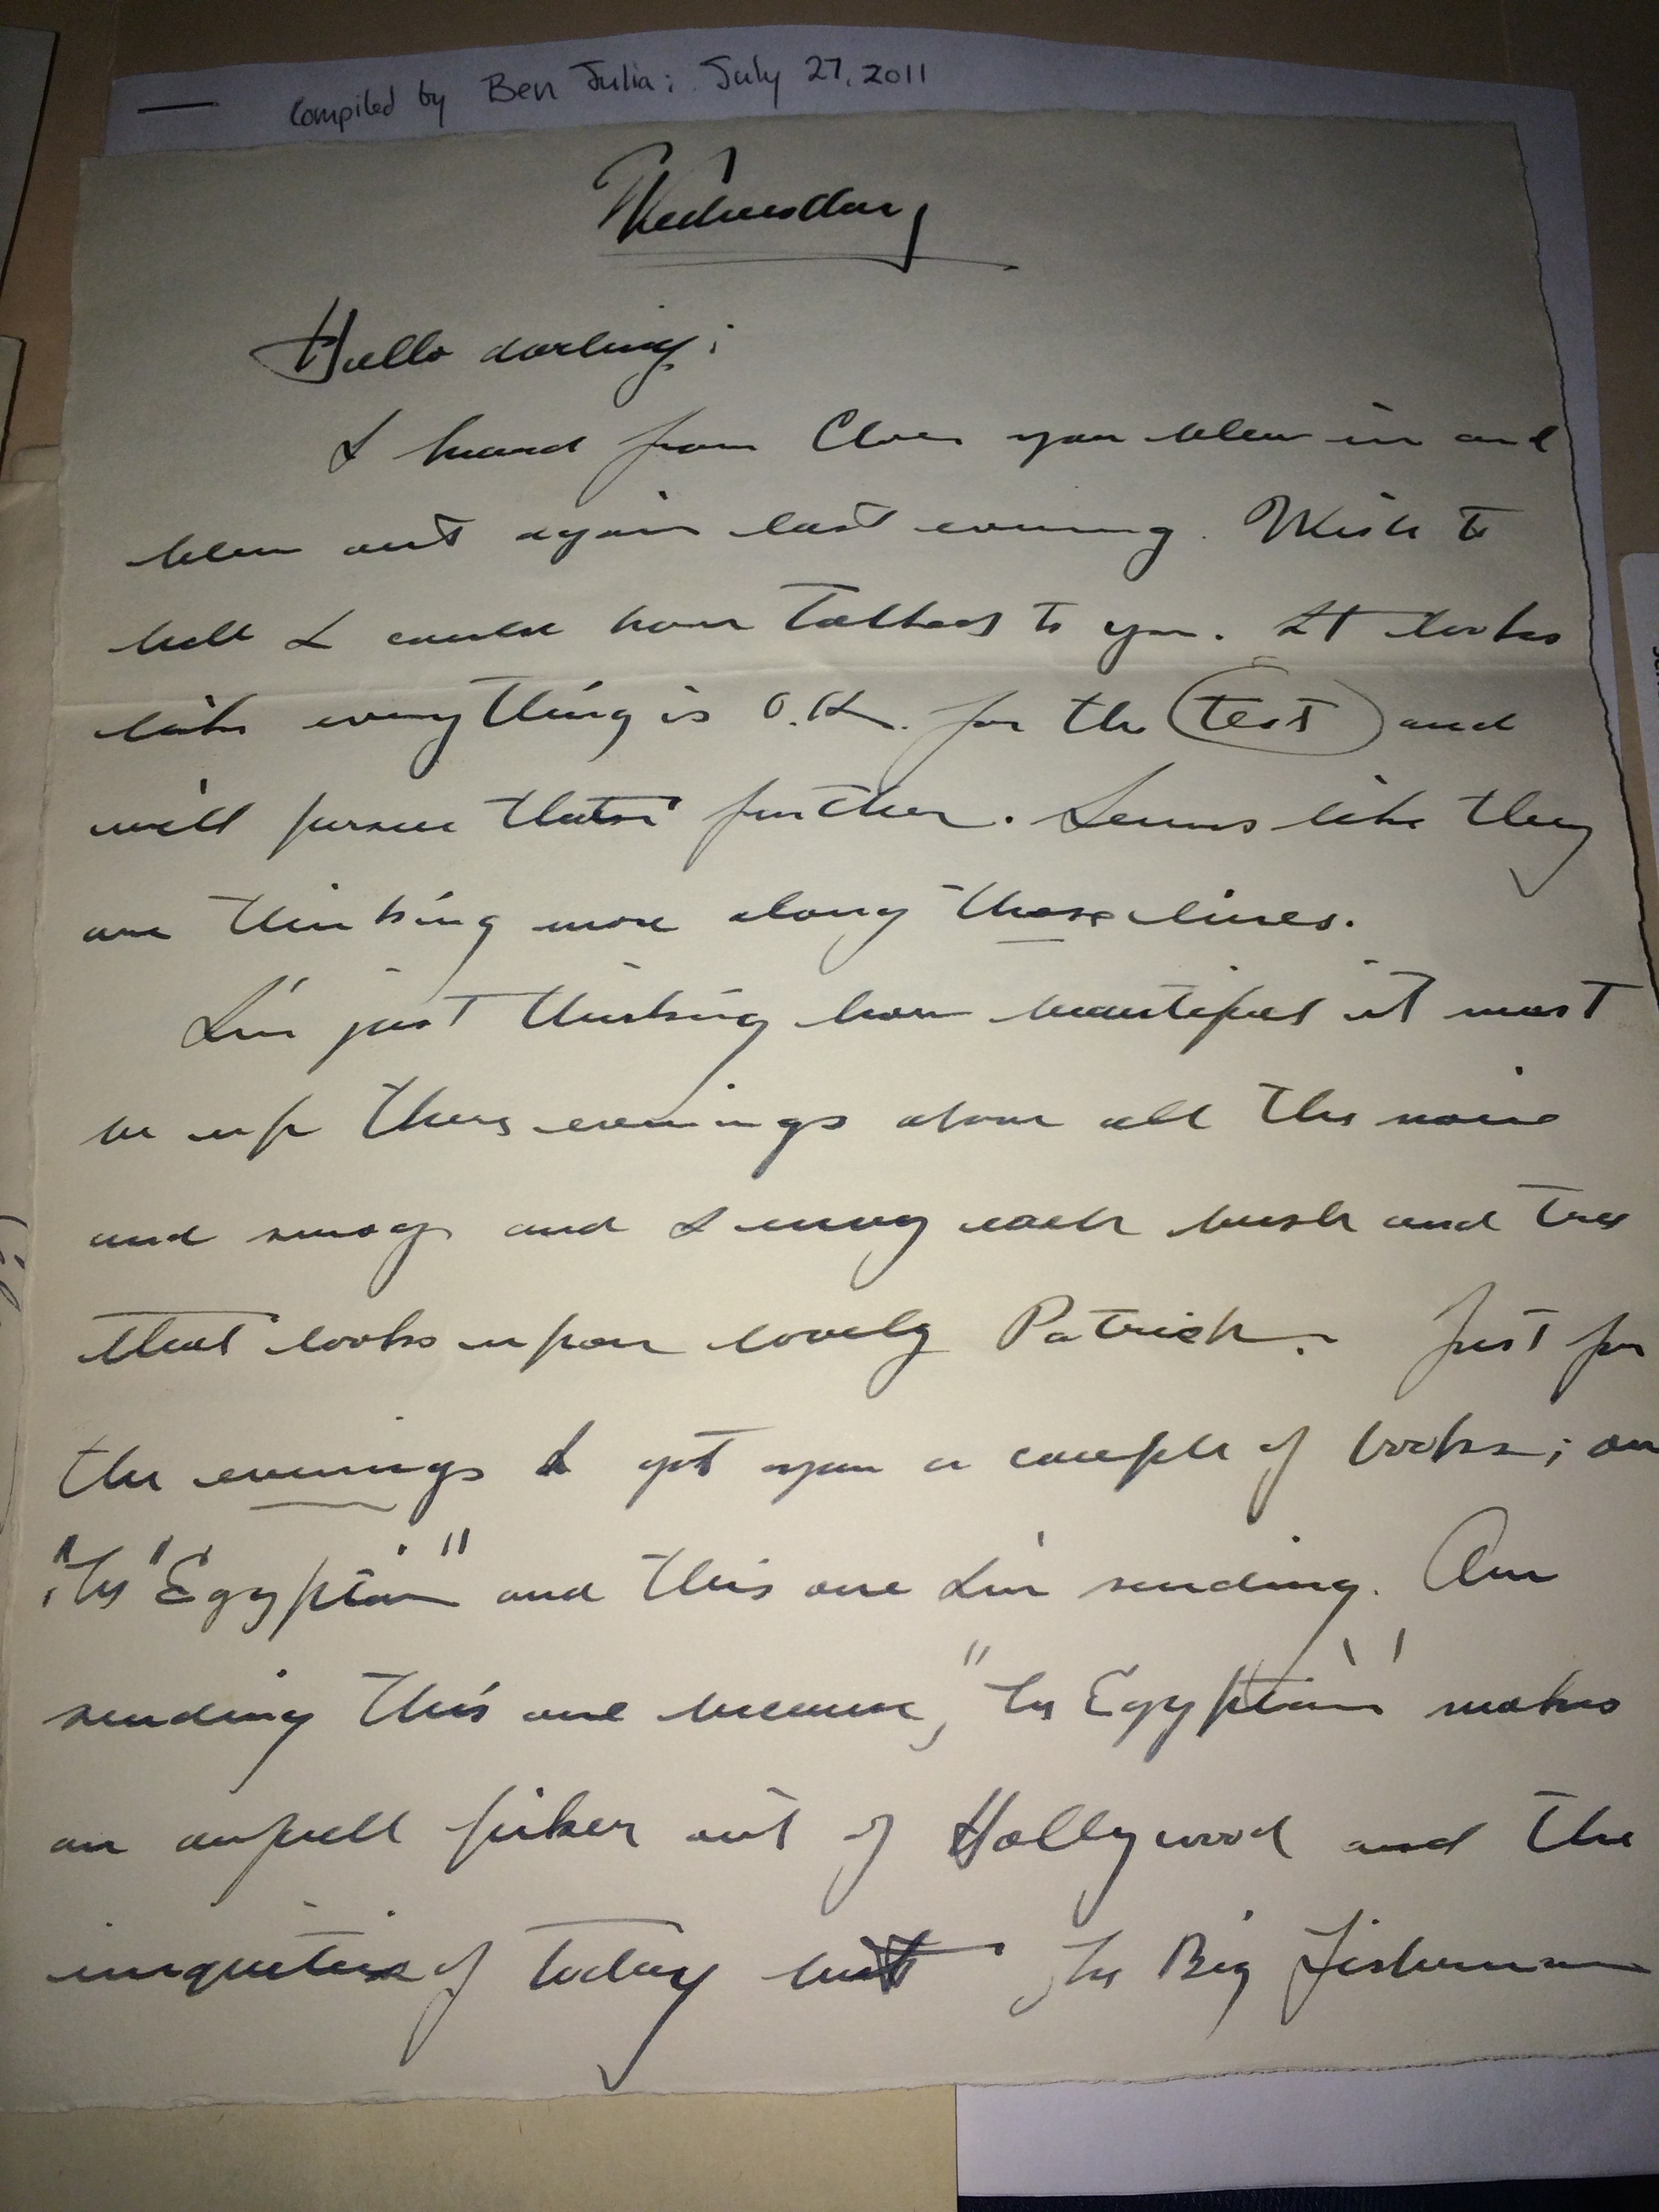 Compiled by Ben Julia; July 27, 2011
Wednesday
Hello darling;
I heard from you blew in and
blew out again last evening. Wish to
hell I could have talked to you. It looks
like everything is O.K. for the test and
will pursue that further. Seems like they
are thinking more along those lines.
I'm just thinking how beautiful it must
be up there evenings above all the noise
and smog and I envy each bush and tree
that looks upon lovely Patrick. Just for
the evenings I got you a couple of books; one
"The Egyptian" and this one I'm sending. Am
sending this one because, "The Egyptian" makes
an awfull piker out of Hollywood and the
of today but The Big Fisherman